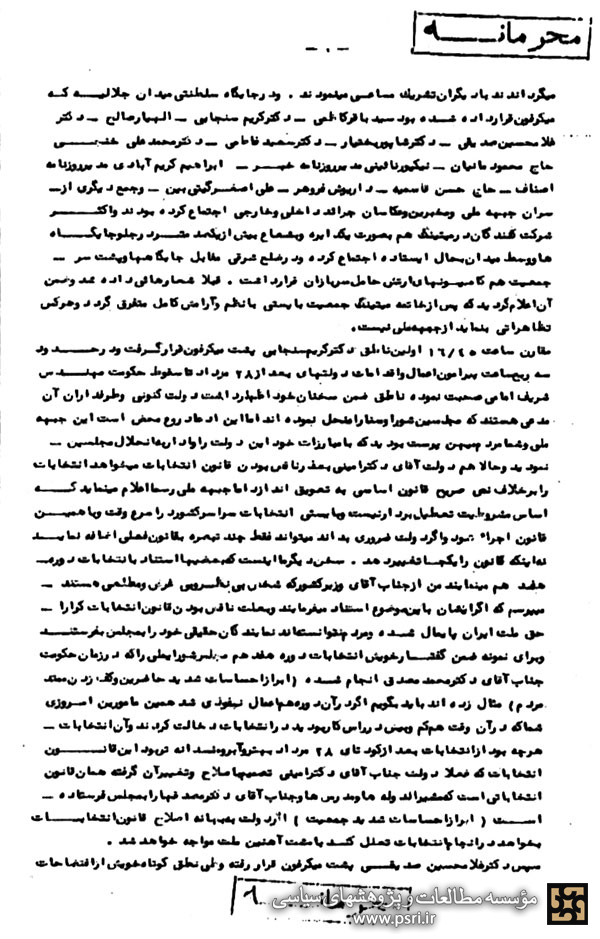 محرمانه
- ۰ -
میگرداندند بادیگران تشریك مساعی مینمودند . ودرجایگاه سلطنتی میدان جلالیه که
میکرفون قرارداده شده بود سیدباقرکاظمی - دکترکریم سنجابی - الهیارصالح - دکتر
غلامحسین صدیقی - دکترشاپوربختیار - دکترسعید فاطمی - دکترمحمدعلی خنجی
حاج محمود مانیان - نیکپورنائینی مدیرروزنامه خبر - ابراهیم کریم آبادی مدیرروزنامه
اصناف - حاج حسن قاسمیه - داریوش فروهر - علی اصغرگیتی بین - وجمع دیگری از
سران جبهه ملی ومخبرین وعکاسان جرائد داخلی وخارجی اجتماع کرده بودند واکثر
شرکت کنندگان درمیتینگ هم بصورت یکدایره وبشعاع بیش ازیکصد متردرجلوجایگاه
هاووسط میدان بحال ایستاده اجتماع کرده ودرضلع شرقی مقابل جایگاهها وپشت سر -
جمعیت هم کامیونهای ارتش حامل سربازان قرارداشت . قبلا شعارهائی داده شد وضمن
آن اعلام گردید که پس ازخاتمه میتینگ جمعیت بایستی بانظم وآرامش کامل متفرق گردد وهرکس
تظاهراتی بنماید ازجبهه ملی نیست.
مقارن ساعت ۱۶/۴۵ اولین ناطق دکترکریم سنجابی پشت میکرفون قرارگرفت ودرحدود
سه ربع ساعت پیرامون اعمال واقدامات دولتهای بعداز۲۸ مرداد تاسقوط حکومت مهندس
شریف امامی صحبت نموده ناطق ضمن سخنان خوداظهارداشت دولت کنونی وطرفداران آن
مدعی هستند که مجلسین شوراوسنارامنحل نموده اند امااین ادعادروغ محض است این جبهه
ملی وشمامردم میهن پرست بودید که بامبارزات خوداین دولت راوادار به انحلال مجلسین -
نمودید وحالاهم دولت آقای دکترامینی بعذرناقص بودن قانون انتخابات میخواهدانتخابات
رابرخلاف نص صریح قانون اساسی به تعویق اندازداماجبهه ملی رسمااعلام مینماید که
اساس مشروطیت تعطیل بردارنیست وبایستی انتخابات سراسرکشوردراسرع وقت وباهمین
قانون اجراء شود واگردولت ضروری بداند میتواند فقط چند تبصره بقانون فعلی اضافه نماید
نه اینکه قانون رایکجاتغییردهد . سخن دیگرمااینست که بعضیهااستناد بانتخابات دوره
هفدهم مینمایند من ازجناب آقای وزیرکشورکه شخص بی نظروبی غرض ومطلعی هستند -
میپرسم که اگرایشان باین موضوع استناد میفرمایند وبعلت ناقص بودن قانون انتخابات کرارا -
حق ملت ایران پایمال شده ومردم نتوانسته اند نمایندگان حقیقی خودرابمجلس بفرستند
وبرای نمونه ضمن گفتارخویش انتخابات دوره هفدهم مجلس شورایملی راکه درزمان حکومت
جناب آقای دکترمحمدمصدق انجام شده (ابرازاحساسات شدید حاضرین وکف زدن ممتد
مردم) مثال زده اند باید بگویم اگردرآن دوره هم اعمال نفوذی شد همین مامورین امروزی
شماکه درآن وقت هم کم وبیش درراس کاربودید درانتخابات دخالت کردند وآن انتخابات -
هرچه بودازانتخابات بعدازکودتای ۲۸ مرداد بهتروآبرومندانه تربوداین قانون
انتخابات که فعلا دولت جناب آقای دکترامینی تصمیم باصلاح وتغییرآن گرفته همان قانون
انتخاباتی است که مشیرالدوله هاومدرس هاوجناب آقای دکترمصدقهارابمجلس فرستاده -
است (ابرازاحساسات شدید جمعیت) اگردولت به بهانه اصلاح قانون انتخابات
بخواهد درانجام انتخابات تعلل کند بامشت آهنین ملت مواجه خواهدشد .
سپس دکترغلامحسین صدیقی پشت میکرفون قراررفته وطی نطق کوتاه خویش ازافتضاحات
مؤسسه مطالعات و پژوهشهای سیاسی
www.psri.ir